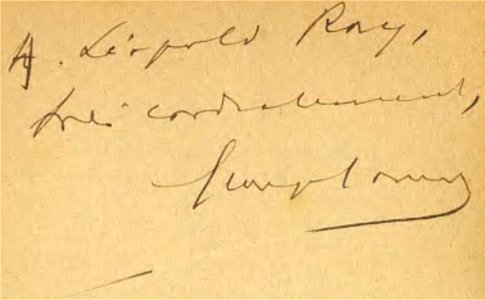 A. Léopold Roy,
très cordialement,